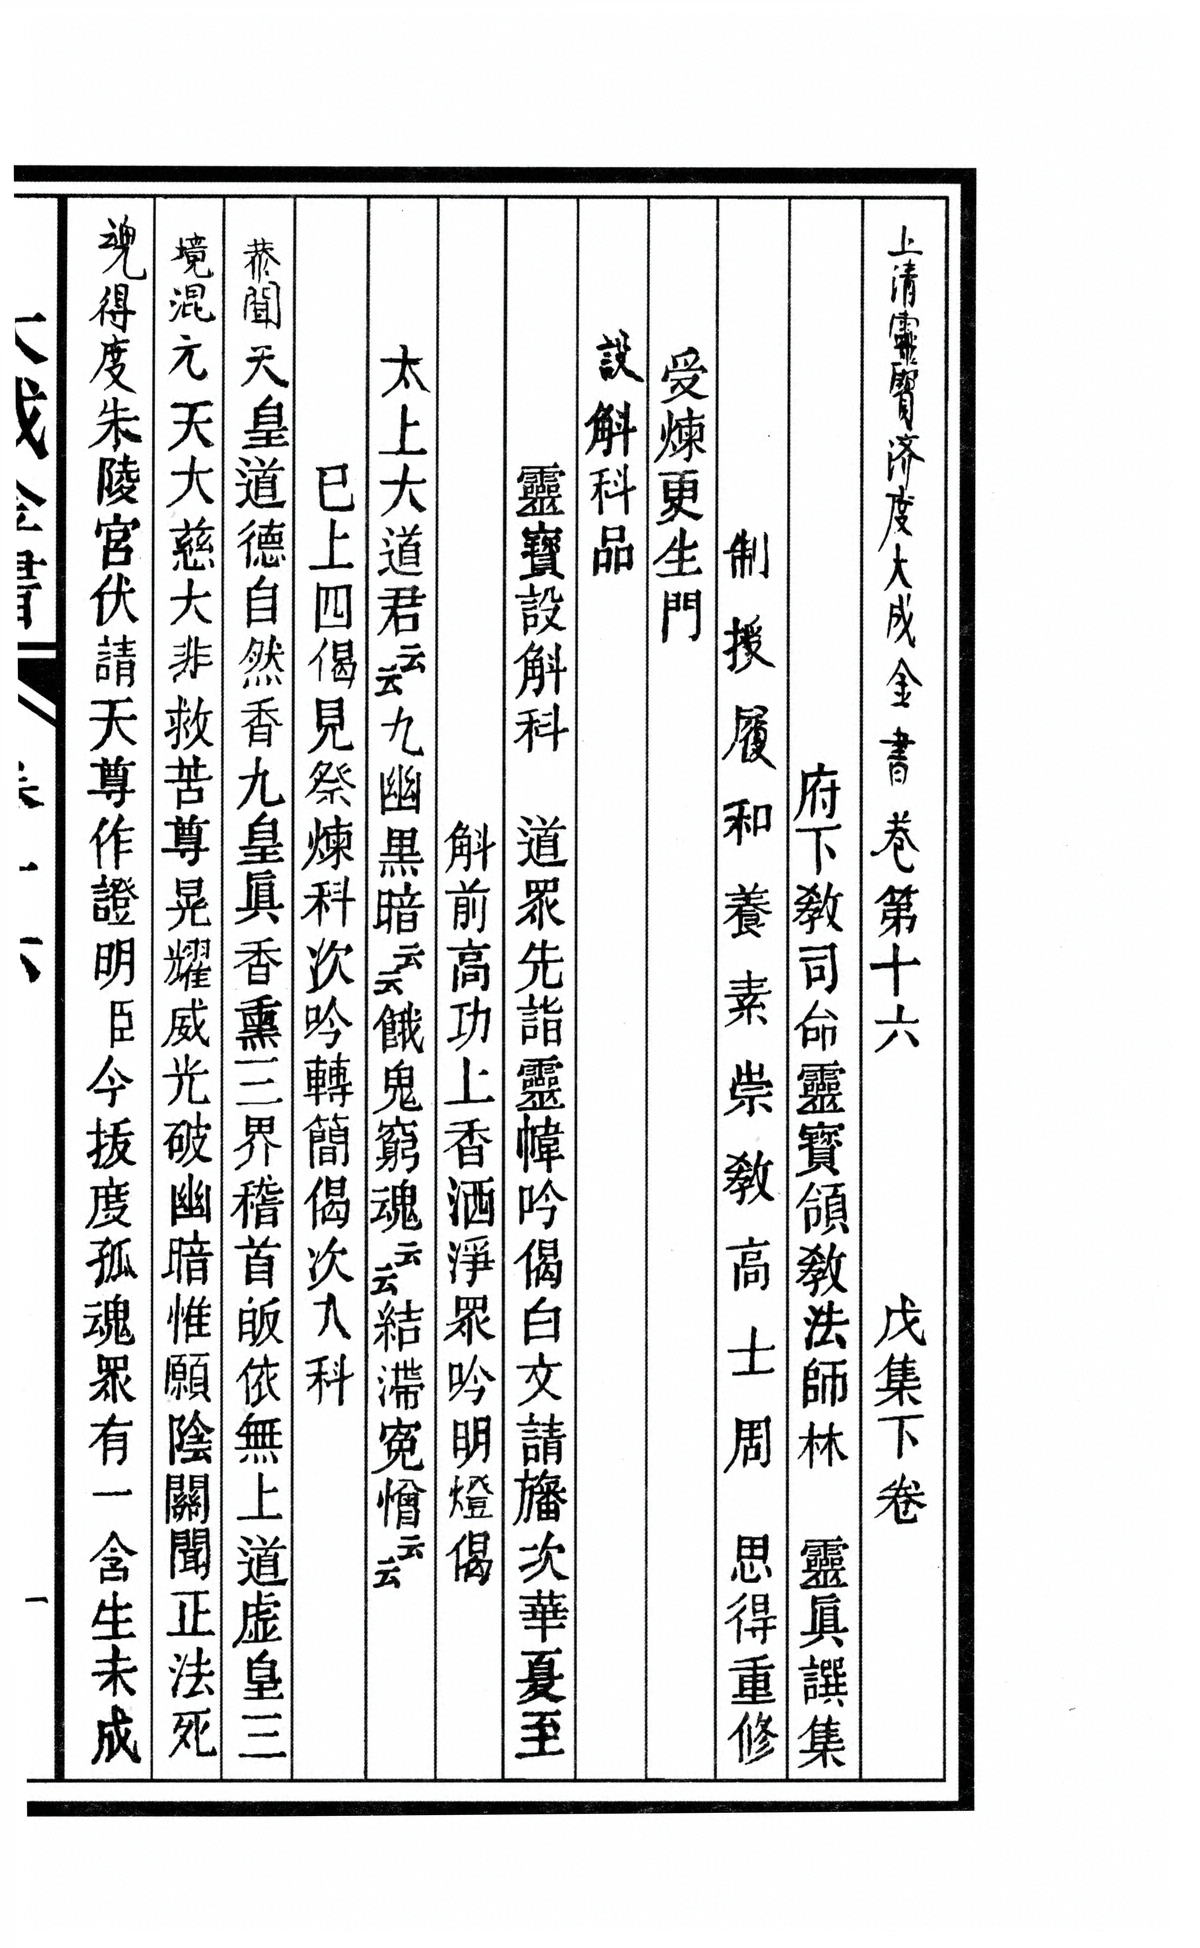 上清靈寶济度大成金書巻第十六 戊集下卷
府下教司命靈寶領教法師林 靈眞譔集
制授履和養素崇教高士周 思得重修
受煉更生門
設斛科品
靈寶設斛科 道眾先詣靈幃吟偈白文請旛次華夏至
斛前高功上香洒淨眾吟明燈偈
太上大道君云云九幽黒暗云云餓鬼窮魂云云結滯寃憎云云
已上四偈見祭煉科次吟轉簡偈次入科
恭聞天皇道德自然香九皇眞香熏三界稽首皈依無上道虛皇三
境混元天大慈大非救苦尊晃耀威光破幽暗惟願陰關聞正法死
魂得度朱陵宮伏請天尊作證明臣今拔度孤魂眾有一含生未成
大成金書 卷十六 一